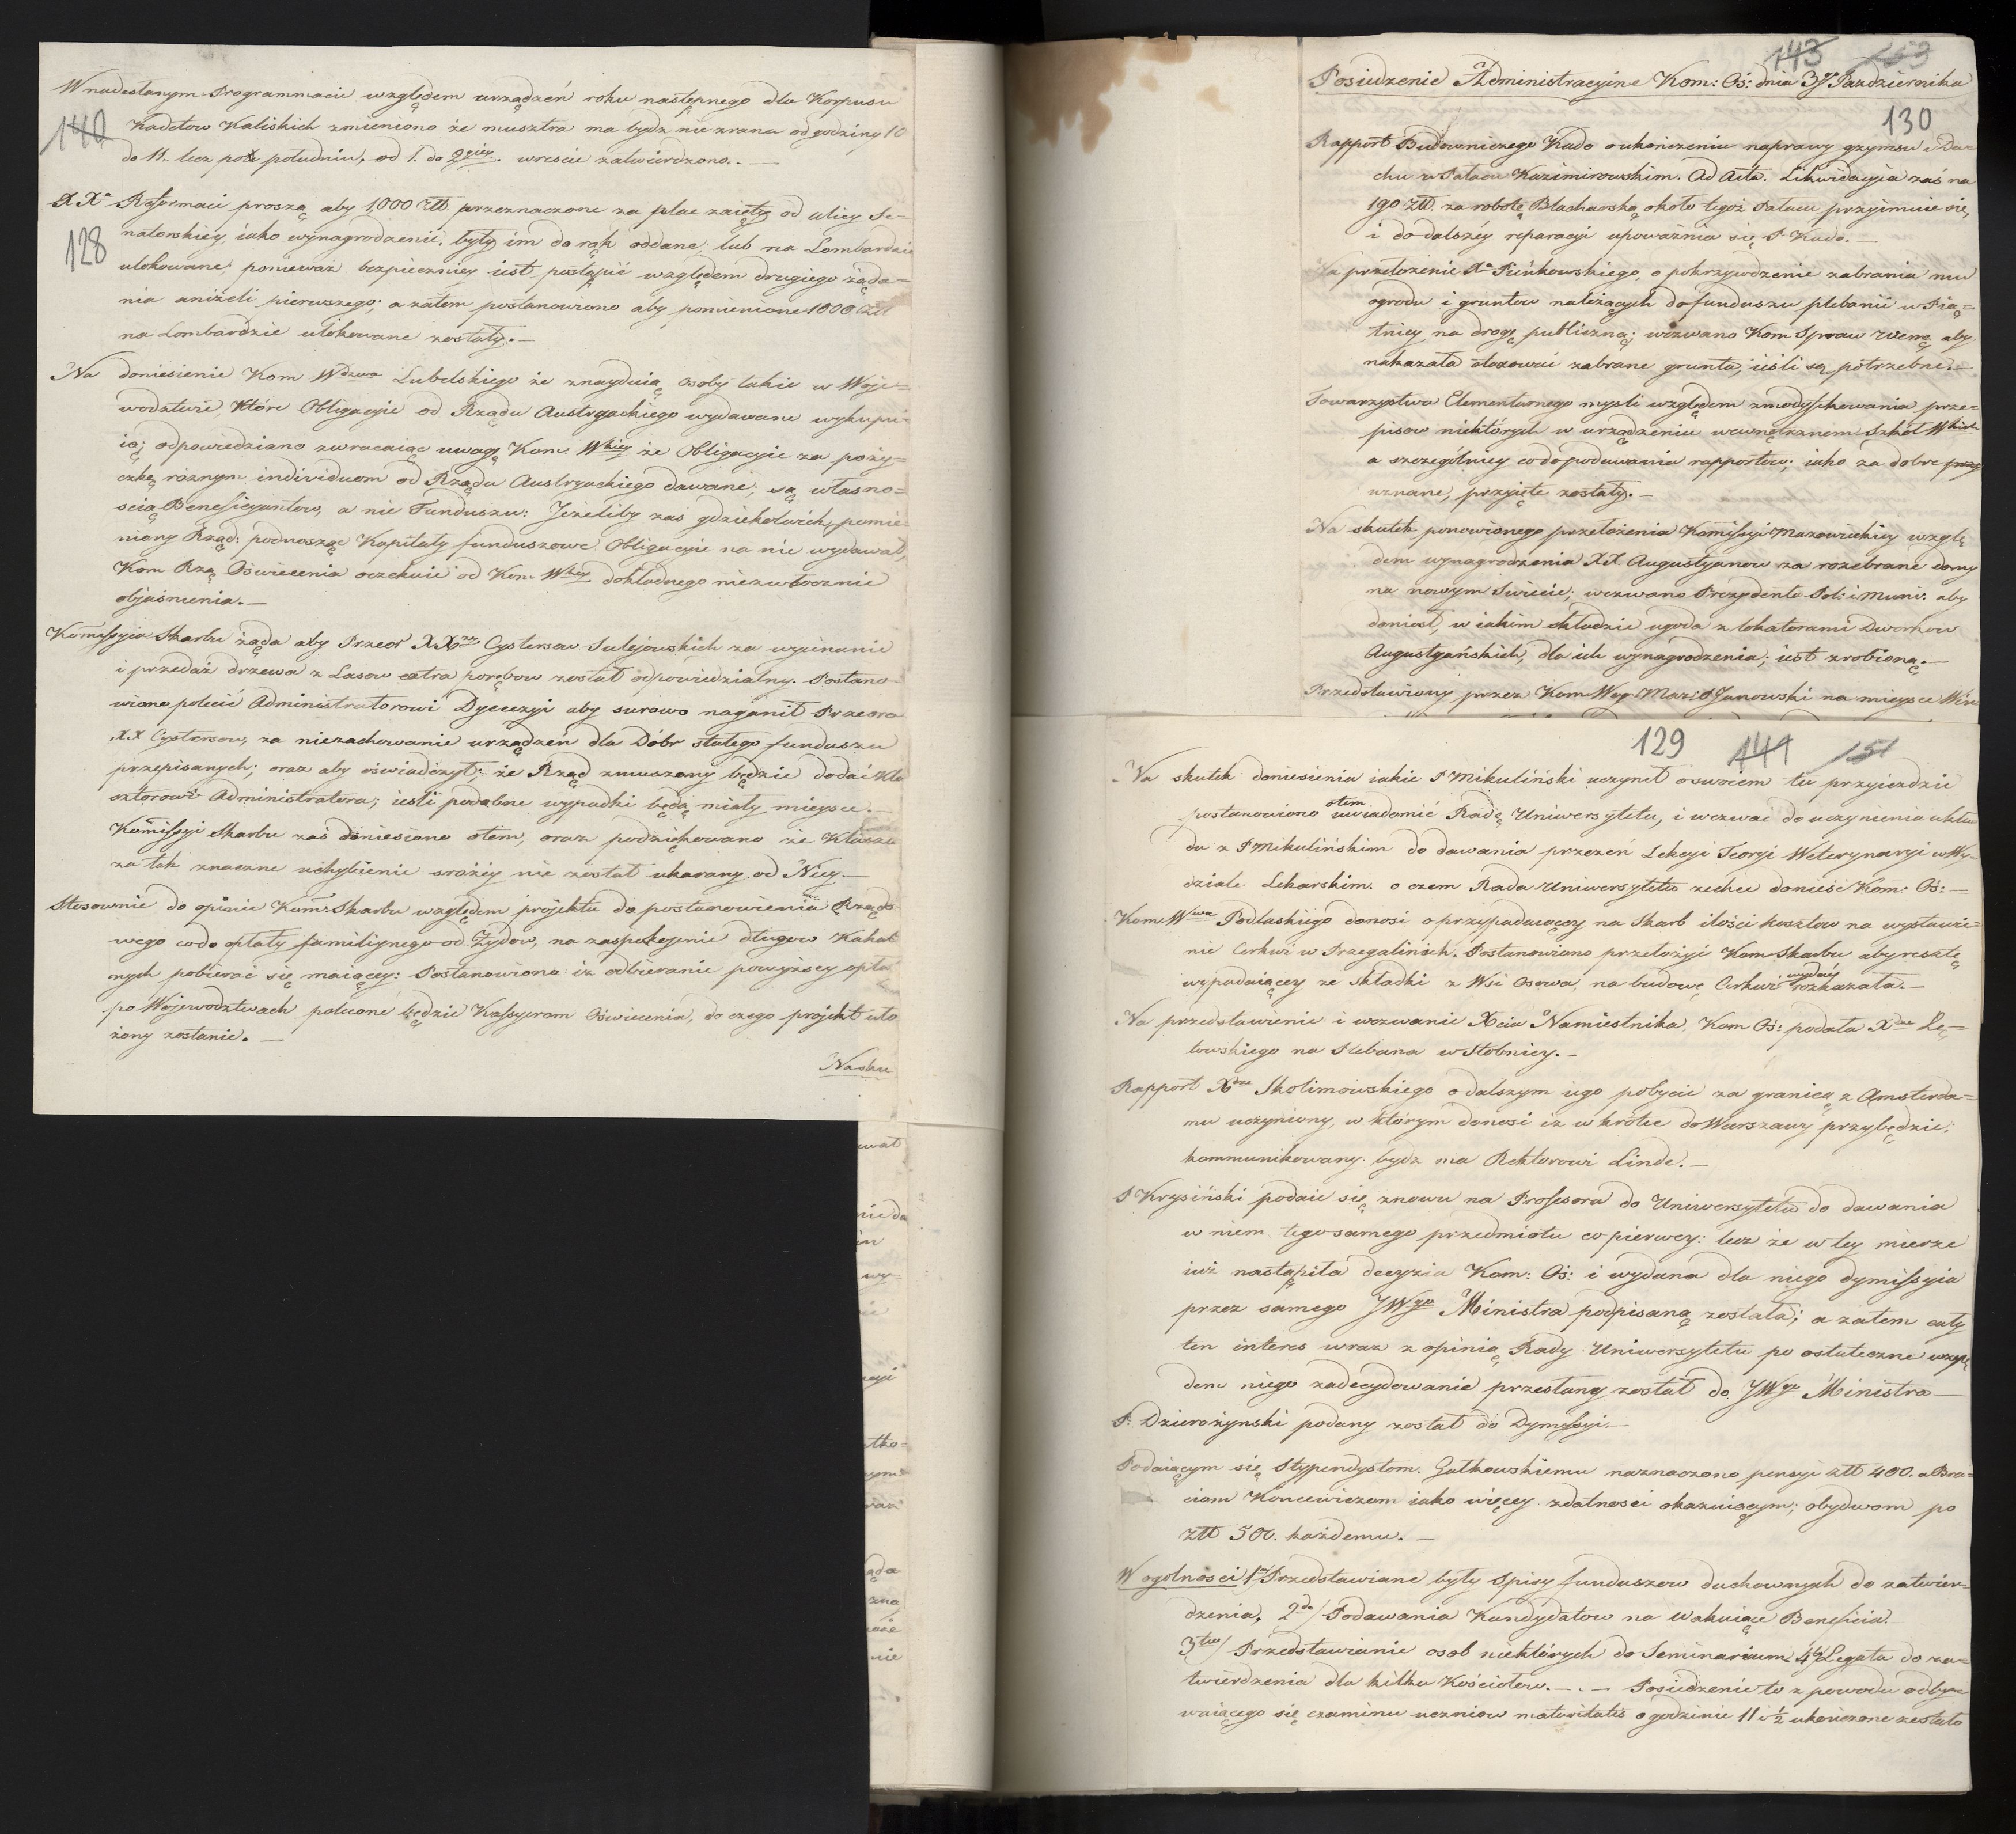 W nadesłanym Programmacie względem urządzeń roku następnego dla Korpusu
140
Kadetow Kaliskich zmieniono że musztra ma bydz nie zrana od godziny 10
do 11. lecz po południu, od 1. do 2giey. wreszcie zatwierdzono. —
XXa Reformaci proszą aby 1,000 Złł przeznaczone za plac zaięty od ulicy Se-
128
natorskiey iako wynagrodzenie, były im do rąk oddane, lub na Lombardzie
ulokowane; ponieważ bezpieczniey iest postąpić względem drugiego żąda-
nia aniżeli pierwszego; a zatem postanowiono aby pomienione 1000 Złł
na Lombardzie ulokowane zostały. —
Na doniesienie Kom Wdzwa Lubelskiego że znayduią osoby takie w Woje-
wodztwie, Które Obligacyie od Rządu Austryackiego wydawane wykupu-
ią; odpowiedziano zwracaiąc uwagę Kom: Wkiey że Obligacyie za poży-
czkę rożnym individuom od Rządu Austryackiego dawane; są własno-
scią Beneficyantow, a nie Funduszu: Jeżeliby zaś gdziekolwiek, pomie-
niony Rząd: podnosząc Kapitały funduszowe Obligacyie na nie wydawał,
Kom Rzą Oświecenia oczekuie od Kom Wkiey dokładnego niezwłocznie
objaśnienia. —
Kommissyia Skarbu żąda aby Przeor XXow Cystersow Sulejowskich za wycinanie
i przedaż drzewa z Lasow extra porębow został odpowiedzialny. Postano-
wiono polecić Administratorowi Dyecezyi aby surowo naganił Przeora
XX Cystersow, za niezachowanie urządzeń dla Dóbr stałego funduszu
przepisanych; oraz aby oświadczył; że Rząd zmuszony będzie dodać Kla
sztorowi Administratora; iesli podobne wypadki będą miały mieysce. —
Kommissyi Skarbu zaś doniesiono otem, oraz podziękowano że Klasztor
za tak znaczne uchybienie srożey nie został ukarany od Niey. —
Stosownie do opinie Kom: Skarbu względem projektu do postanowienia Rządo
wego codo opłaty familijnego od Żydow, na zaspokojenie długow Kahal
nych pobierać się maiącey: Postanowiono iż odbieranie powyższey opła
po Wojewodztwach polecone będzie Kassyerom Oświecenia, do czego projekt uło
żony zostanie. —
Na sku
143 153
Posiedzenie Administracyjne Kom: Oś: dnia 3go Pazdziernika
130
Rapport Budowniczego Kado o ukończeniu naprawy gzymsu i Da-
chu w Pałacu Kazimirowskim. Ad Acta. Likwidacyia zaś na
190 Złł. za robotę Blacharską około tegoż Pałacu przyimuie się,
i do dalszey reparacyi upoważnia się P Kado. —
Na przełożenie Xa Pieńkowskiego, o pokrzywdzenie zabrania mu
ogrodu i gruntow należących do funduszu plebanii w Pią-
tnicy na drogę publiczną; wezwano Kom Spraw Wewnę aby
nakazała otaxować zabrane grunta, iesli są potrzebne. —
Towarzystwa Elementarnego mysli względem zmodyfikowania prze-
pisow niektórych w urządzeniu wewnętrznem Szkoł Wkich
a szczegolniey codo podawania rapportow; iako za dobre
uznane, przyięte zostały. —
Na skutek ponowionego przełożenia Kommissyi Mazowieckiey wzglę
dem wynagrodzenia XX Augustyanow za rozebrane domy
na nowym Swiecie; wezwano Prezydenta Pol: i Muni: aby
doniosł, w iakim składzie ugoda z lokatorami Dworkow
Augustyańskich, dla ich wynagrodzenia; iest zrobioną. —
Przedstawiony przez Kom Woy Maz: P Janowski na mieysce Win
129 141 151
Na skutek doniesienia iakie P Mikuliński uczynił o swoiem tu przyieździe
postanowiono otem uwiadomić Radę Uniwersytetu, i wezwać do uczynienia ukła
du z P Mikulińskim do dawania przezeń Lekcyi Teoryi Weterynaryi w Wy-
dziale Lekarskim. o czem Rada Uniwersytetu zechce donieść Kom: Oś: —
Kom Wwa Podlaskiego donosi o przypadaiącey na Skarb ilości kosztow na wystawie-
nie Cerkwi w Przegalinach. Postanowiono przełożyć Kom Skarbu aby resztę
wypadaiącey ze składki z Wsi Osowa, na budowę Cerkwi wydać rozkazała. —
Na przedstawienie i wezwanie Xcia Namiestnika, Kom Oś: podała Xdza Lę-
towskiego na Plebana w Stobnicy. —
Rapport Xdza Skolimowskiego o dalszym iego pobycie za granicą z Amsterda-
mu uczyniony, w którym donosi iż w krótce do Warszawy przybędzie;
kommunikowany bydz ma Rektorowi Linde. —
P Krysiński podaie się znowu na Professora do Uniwersytetu do dawania
w niem tegosamego przedmiotu co pierwey: lecz że w tey mierze
iuż nastąpiła decyzia Kom: Oś: i wydana dla niego dymissyia
przez samego JWgo Ministra podpisaną została; a zatem cały
ten interes wraz z opinią Rady Uniwersytetu po ostateczne wzglę
dem niego zadecydowanie przesłany został do JWgo Ministra —
P. Dzierożynski podany został do Dymissyi. —
Podaiącym się Stypendystom. Gatkowskiemu naznaczono pensyi złł 400. a Bra-
ciom Koncewiczom iako więcey zdatnosci okazuiącym; obydwom po
złł 500. każdemu. —
W ogolnosci 1o/ Przedstawiane były Spisy funduszow duchownych do zatwier-
dzenia, 2do/ Podawania Kandydatow na wakuiące Beneficia.
3tio/ Przedstawianie osob niektórych do Seminarium 4to Legata do za-
twierdzenia dla kilku Kościołow. — . — Posiedzenie to z powodu odby-
waiącego się examinu uczniow maturitatis o godzinie 11 i ½ ukończone zostało